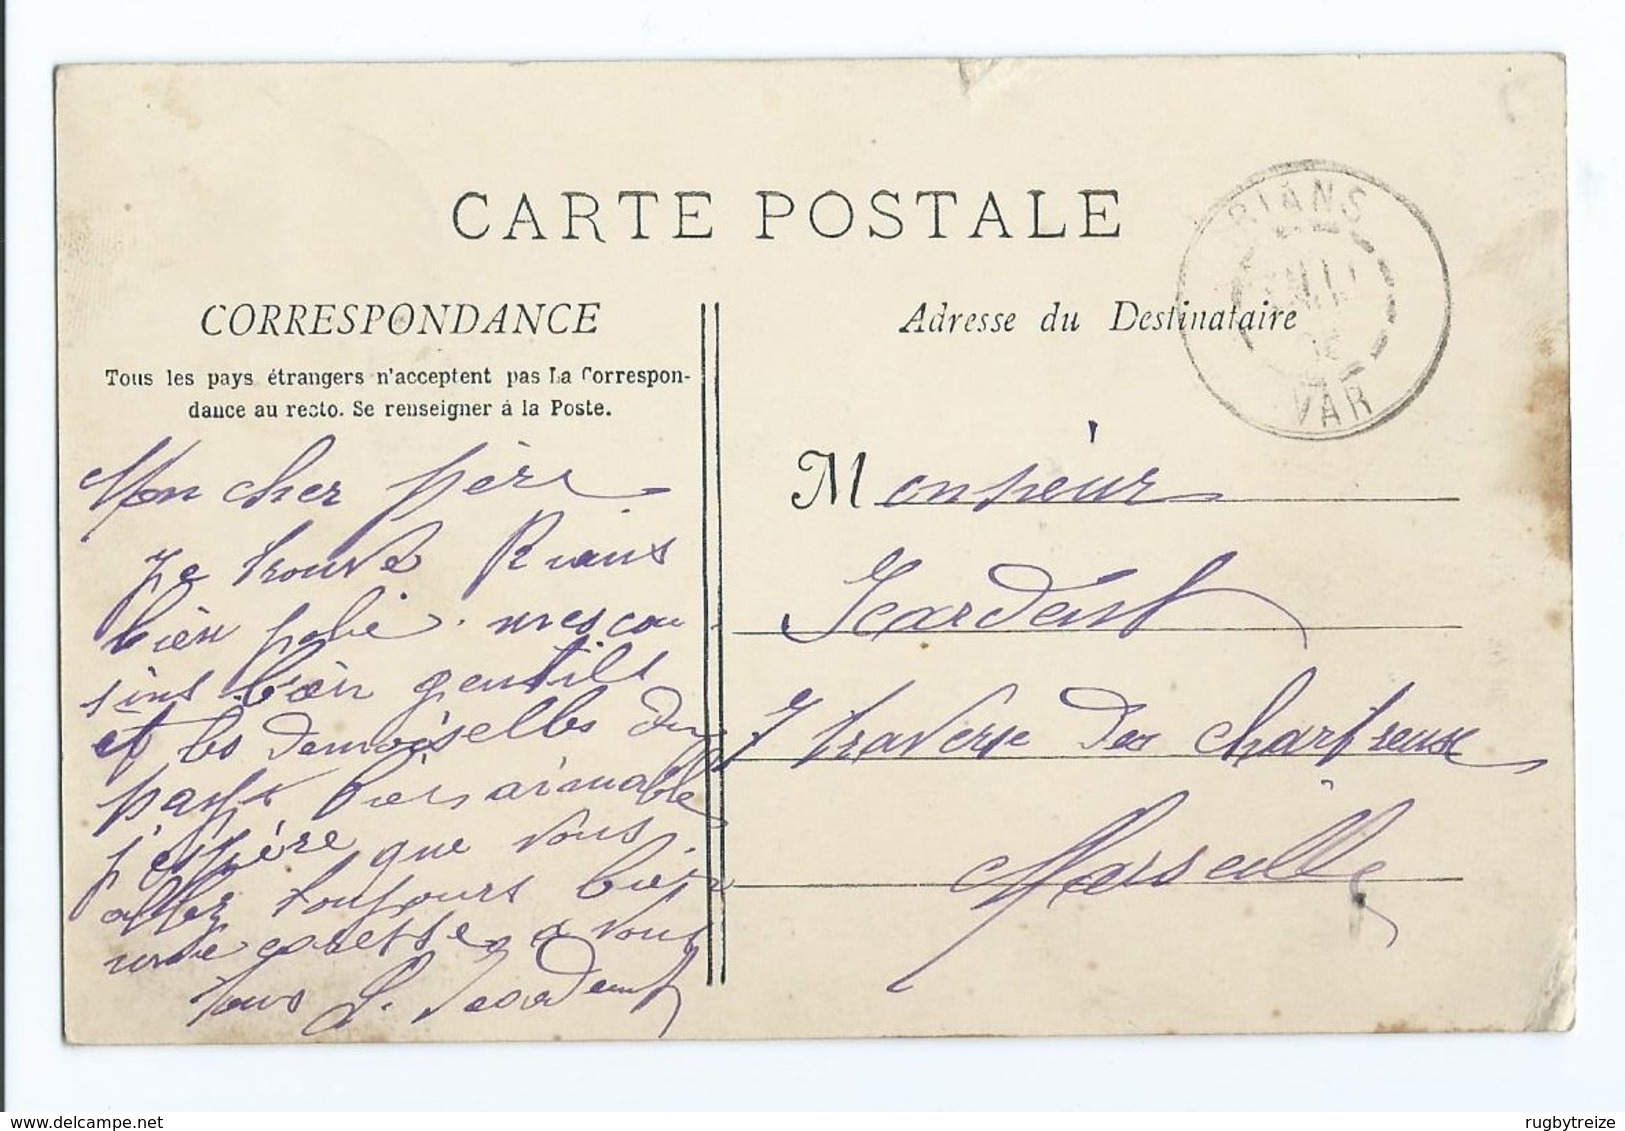 CARTE POSTALE
RIANS
VAR
CORRESPONDANCE
Tous les pays étrangers n'acceptent pas La Correspon-
dance au recto. Se renseigner à la Poste.
Mon cher père
je trouve Rians
bien jolie. mes cou
sins bien gentils
et les demoiselles du
pays bien aimable
j'espère que vous
allez toujours bien
une caresse a vous
tous
Adresse du Destinataire
Monsieur
7 traverse des chartreux
Marseille
rugbytreize